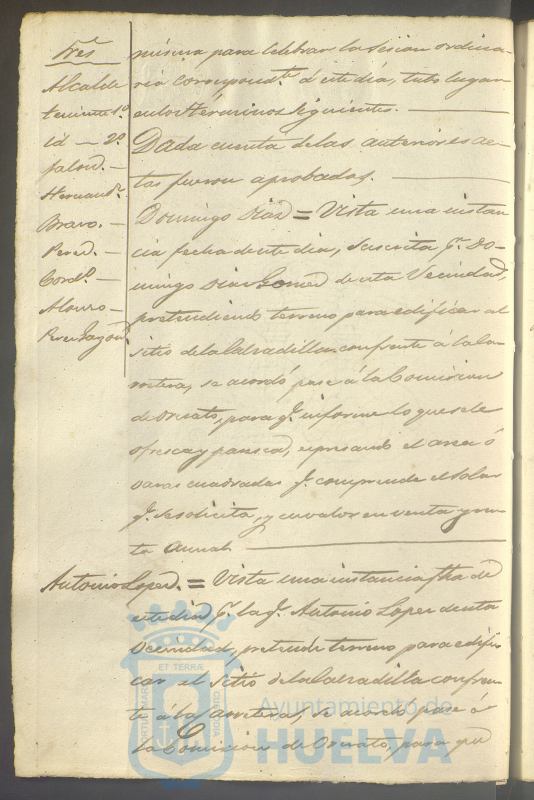 Sres.
Alcalde
teniente 1º
id — 2º
Falcó. —
Hernand.z
Bravo. —
Pered. —
Cord.º —
Alonso —
Perez
misma para celebrar la sesion ordina-
ria correspond.te á este dia, tubo lugar
en los términos siguientes.
Dada cuenta de las anteriores ac-
tas fueron aprobadas.
Domingo Diaz = Vista una instan
cia fecha de este dia, suscrita p.r Do-
mingo Diaz Gomez de esta Vecindad,
pretendiendo terreno para edificar al
sitio de la Calzadilla con frente á la Ca-
rretera, se acordó pase á la Comision
de Ornato, para q.e informe lo que se le
ofresca y paresca, espresando el area ó
varas cuadradas q.e comprende el solar
q.e se solicita, y su valor en venta y ren-
ta Anual.
Antonio Lopez. = Vista una instancia fha de
este dia, p.r la q.e Antonio Lopez de esta
Vecindad, pretende terreno para edifi-
car al sitio de la Calzadilla con fren-
te á la Carretera, se acordó pase á
la Comision de Ornato, para que
PORTUS MARIS
ET TERRÆ
CUSTODIA
Ayuntamiento de
HUELVA